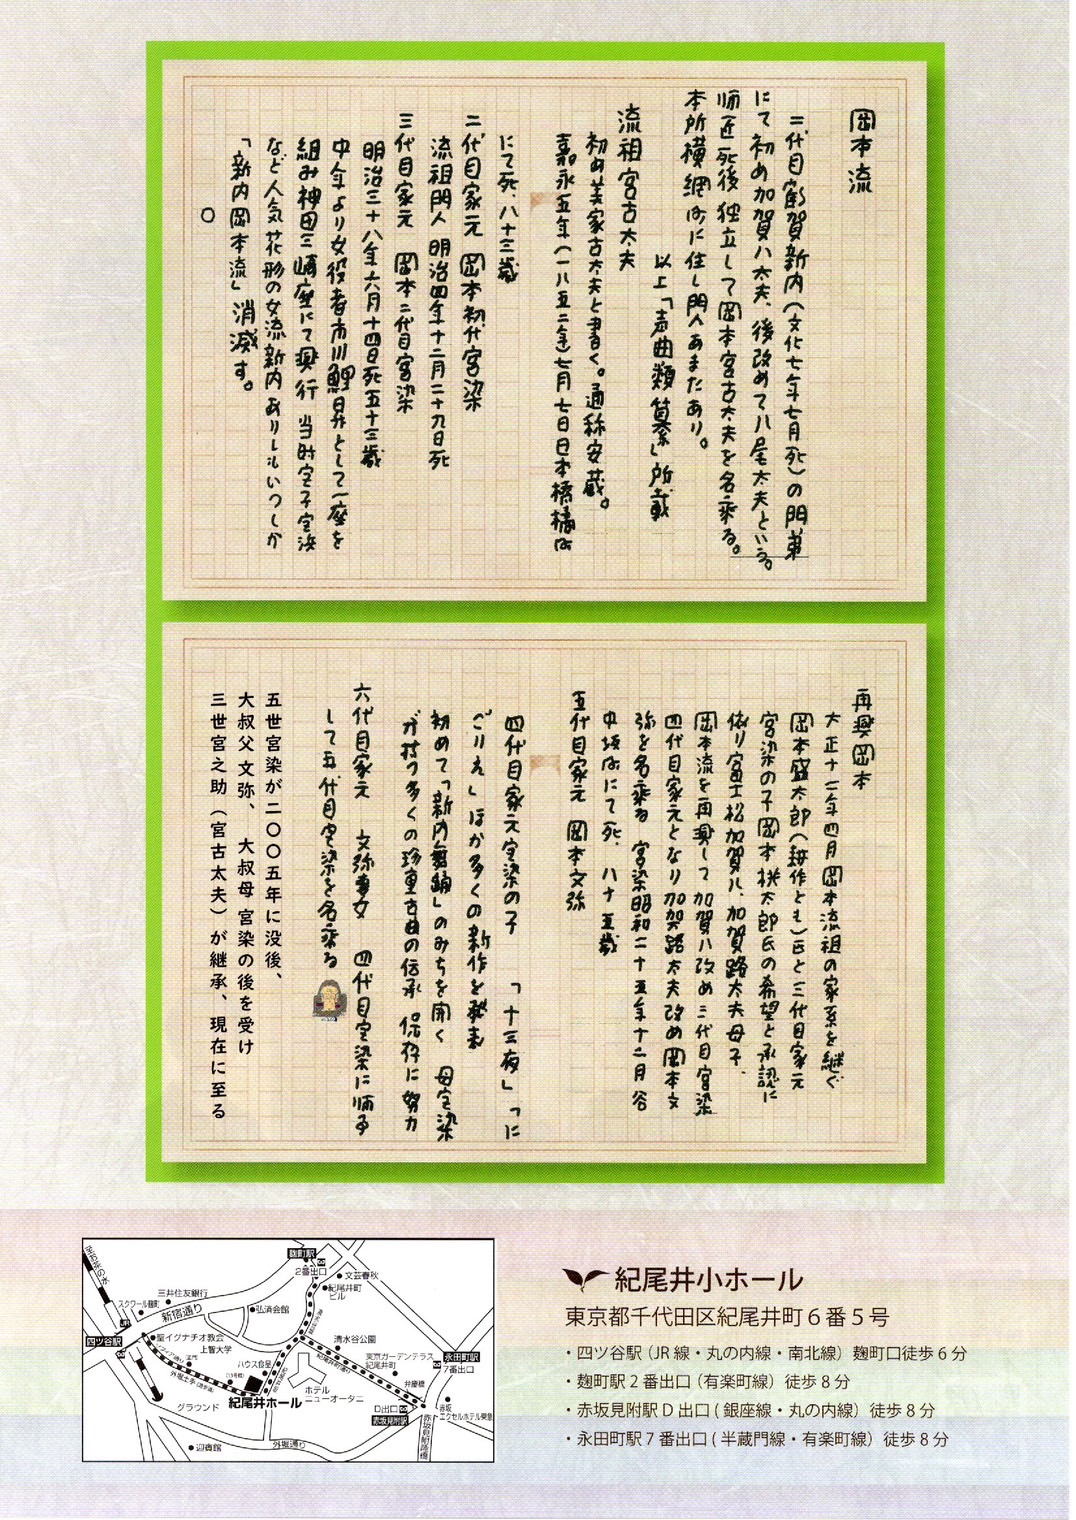 岡本流
二代目鶴賀新内(文化七年七月死)の門弟
にて初め加賀八太夫、後改めて八尾太夫という。
師匠死後独立して岡本宮古太夫を名乗る。
本所横網町に住し門人あまたあり。
以上「声曲類纂」所載
流祖宮古太夫
初め美家古太夫と書く。通称安蔵。
嘉永五年(一八五二年)七月七日日本橋橘町
にて死、八十三歳
二代目家元 岡本初代宮染
流祖門人 明治四年十二月二十九日死
三代目家元 岡本二代目宮染
明治三十八年六月十四日死五十三歳
中年より女役者市川鯉昇として一座を
組み神田三崎座にて興行 当時宮子宮浜
など人気花形の女流新内ありしもいつしか
「新内岡本流」消滅す。
○
再興岡本
大正十二年四月岡本流祖の家系を継ぐ
岡本盛太郎(耕作とも)氏と三代目家元
宮染の子岡本桃太郎氏の希望と承認に
依り富士松加賀八、加賀路太夫母子、
岡本流を再興して加賀八改め三代目宮染
四代目家元となり加賀路太夫改め岡本文
弥を名乗る 宮染昭和二十五年十二月谷
中坂町にて死、八十五歳
五代目家元 岡本文弥
四代目家元宮染の子 「十三夜」「に
ごりえ」ほか多くの新作を発表
初めて「新内舞踊」のみちを開く 母宮染
が持つ多くの珍重古曲の伝承 保存に努力
六代目家元 文弥養女 四代目宮染に師事
して五代目宮染を名乗る
五世宮染が二〇〇五年に没後、
大叔父 文弥、 大叔母 宮染の後を受け
三世宮之助(宮古太夫)が継承、現在に至る
麹町駅
2番出口
文芸春秋
紀尾井町
ビル
三井住友銀行
スクワール麹町
新宿通り
弘済会館
四ツ谷駅
聖イグナチオ教会
上智大学
清水谷公園
東京ガーデンテラス
紀尾井町
永田町駅
7番出口
ハウス食品
紀尾井町通り
外堀土手(遊歩道)
弁慶橋
紀尾井ホール
ホテル
ニューオータニ
グラウンド
D出口
赤坂見附駅
赤坂
エクセルホテル東急
迎賓館
外堀通り
赤坂見附陸橋
紀尾井小ホール
東京都千代田区紀尾井町6番5号
・四ツ谷駅(JR線・丸の内線・南北線)麹町口徒歩6分
・麹町駅2番出口(有楽町線)徒歩8分
・赤坂見附駅D出口(銀座線・丸の内線)徒歩8分
・永田町駅7番出口(半蔵門線・有楽町線)徒歩8分